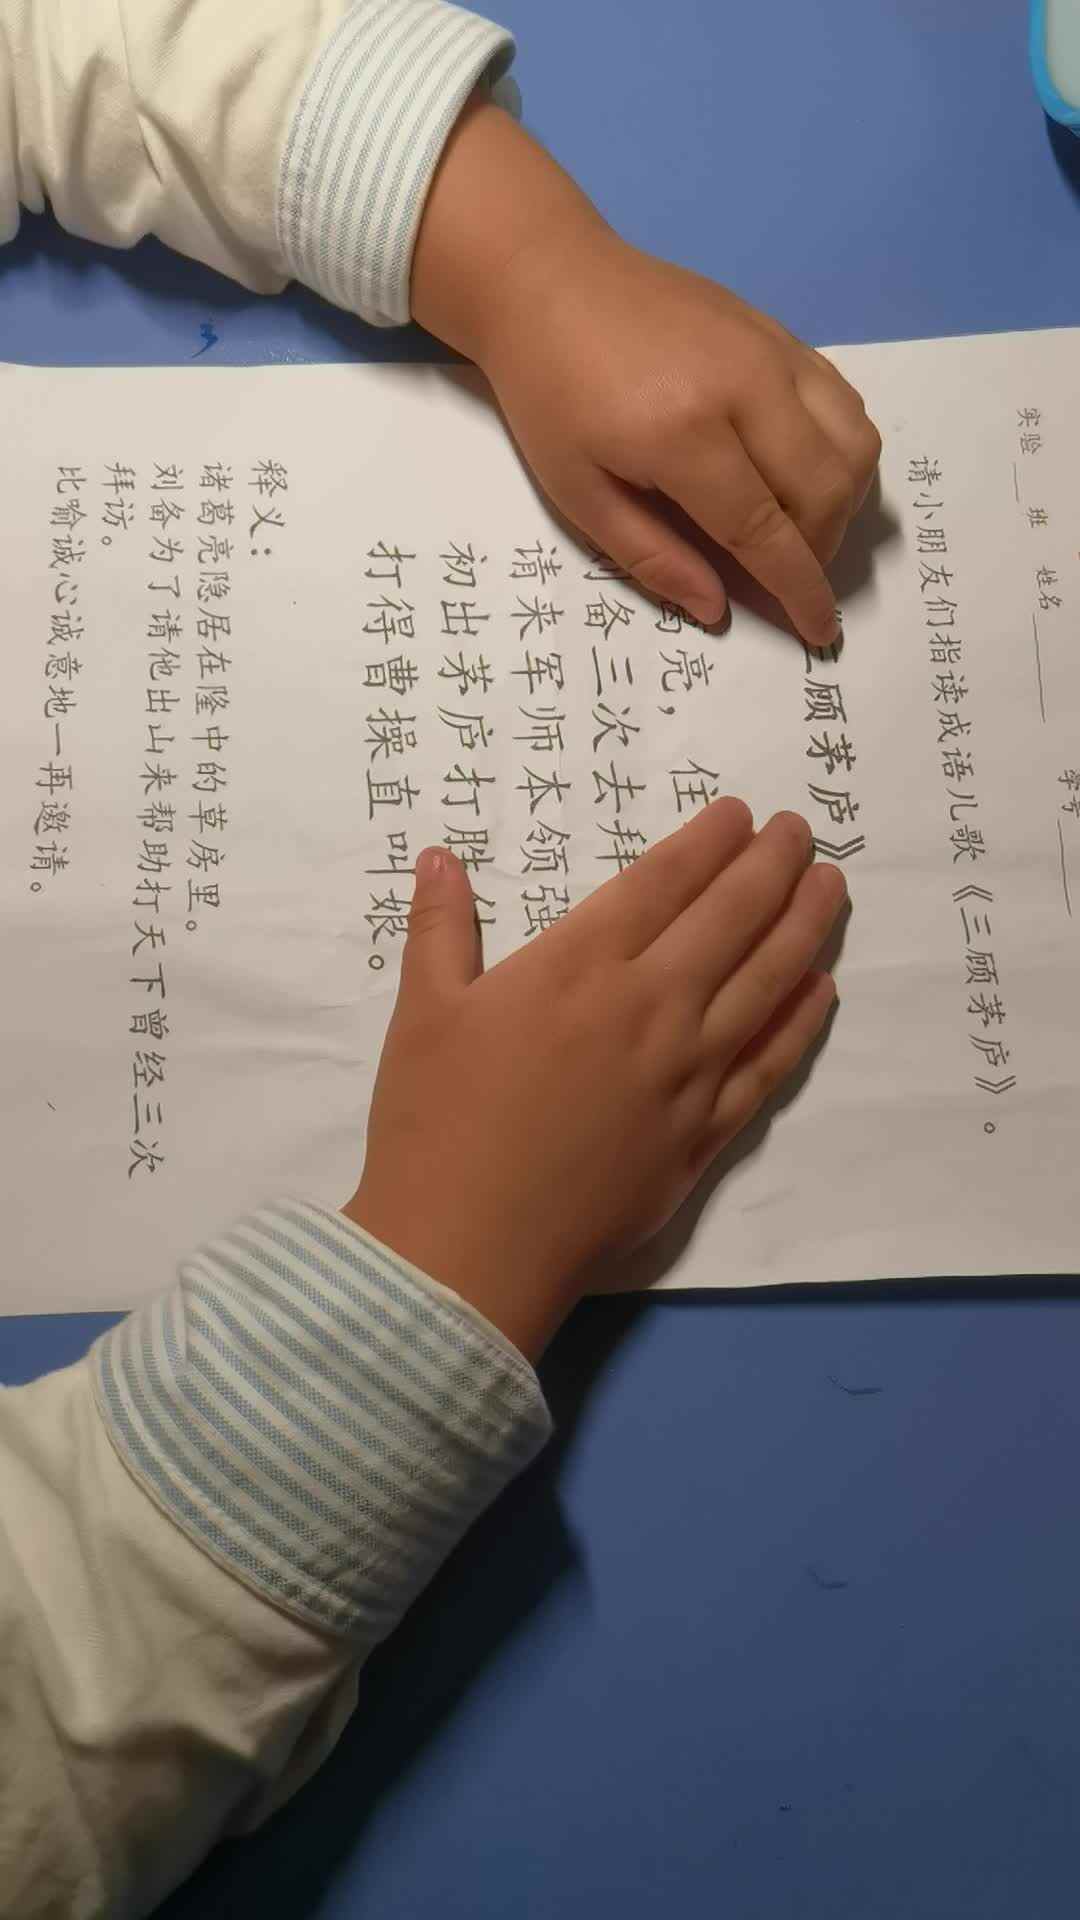 实验 班 姓名 学号
请小朋友们指读成语儿歌《三顾茅庐》。
《三顾茅庐》
葛亮， 住
刘备三次去拜
请来军师本领强
初出茅庐打胜仗
打得曹操直叫娘。
释义：
诸葛亮隐居在隆中的草房里。
刘备为了请他出山来帮助打天下曾经三次
拜访。
比喻诚心诚意地一再邀请。